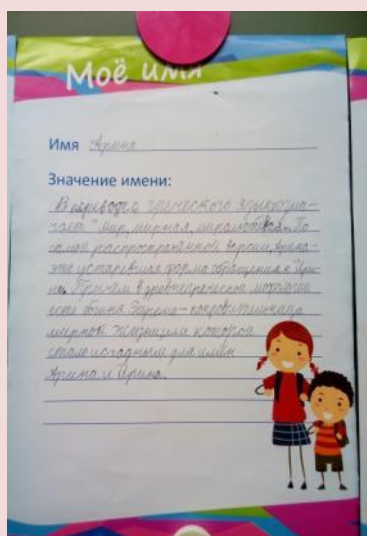 Моё имя
Имя Арина
Значение имени:
В переводе с греческого языка озна-
чает "мир, мирная, миролюбивая". По
самой распространённой версии, Арина-
это устаревшая форма обращения к Ири-
не. Причём в древнегреческой мифологии
есть богиня - покровительница
мирной жизни, имя которой
стало исходным для имён
Арина и Ирина.